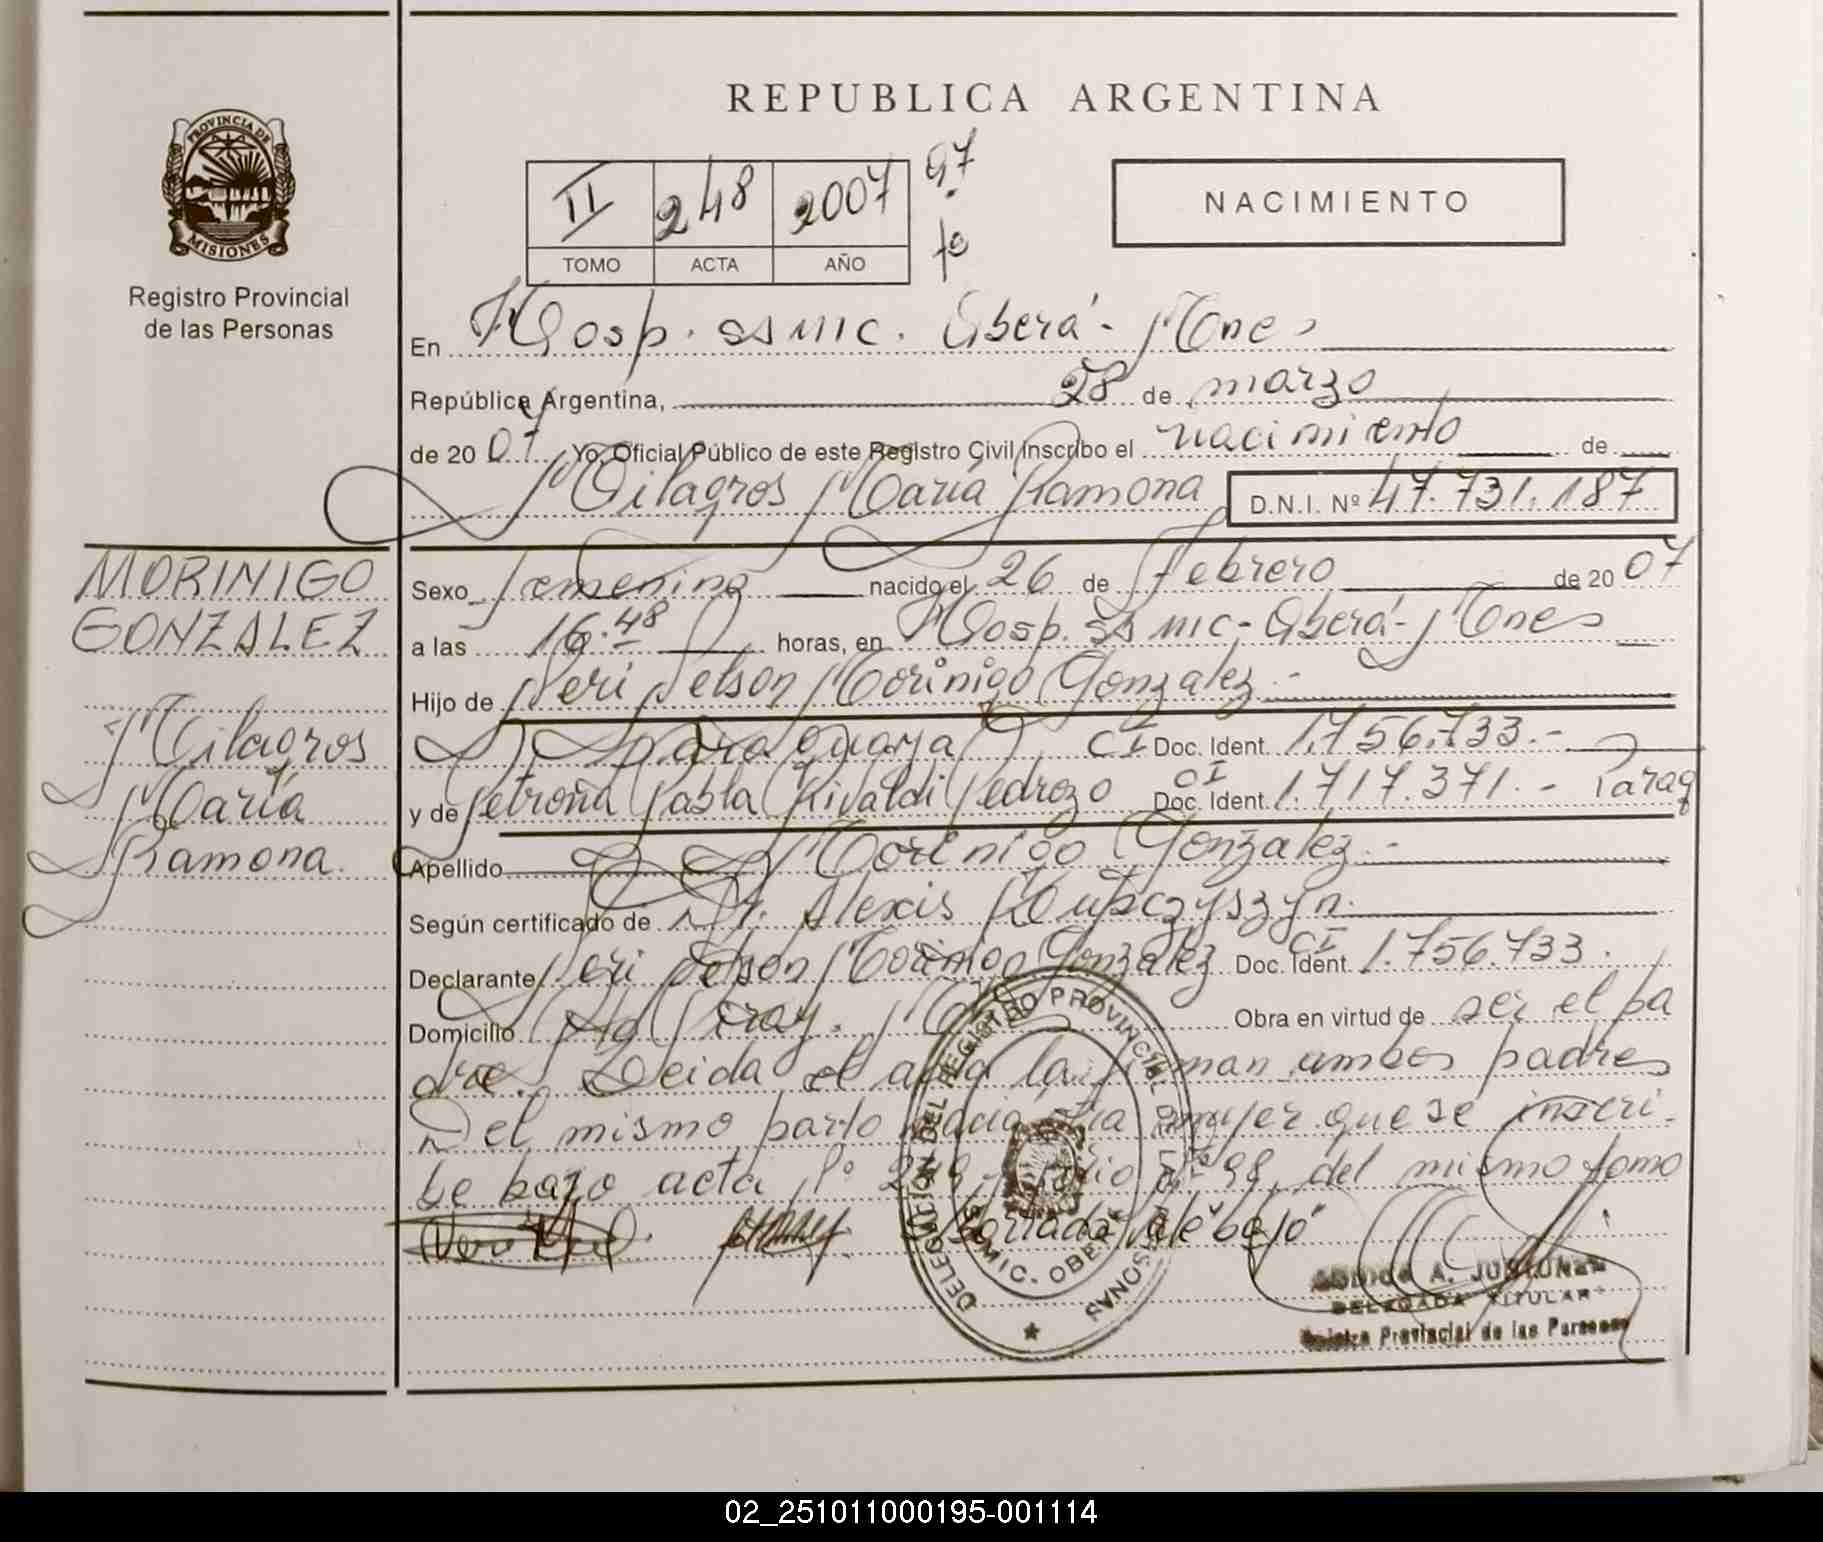 REPUBLICA ARGENTINA
PROVINCIA DE
MISIONES
Registro Provincial
de las Personas
II 248 2007 97
TOMO ACTA AÑO fo
NACIMIENTO
En Hosp. SS MIC. Oberá - Mnes
República Argentina, 28 de marzo
de 2007 Yo, Oficial Público de este Registro Civil Inscribo el nacimiento de
Milagros María Ramona D.N.I. Nº 47.731.187
MORINIGO
GONZALEZ
Milagros
María
Ramona.
Sexo femenino nacido el 26 de Febrero de 2007
a las 16.48 horas, en Hosp. SS MIC - Oberá - Mnes
Hijo de Neri Nelson Morinigo Gonzalez.-
paraguaya CI Doc. Ident. 1.756.733.-
y de Petrona Pabla Rivaldi Pedrozo CI Doc. Ident. 1.717.371.- Parag
Apellido Morinigo Gonzalez.-
Según certificado de Dr. Alexis
Declarante Neri Nelson Morinigo Gonzalez CI Doc. Ident. 1.756.733.
Domicilio Obra en virtud de ser el pa
dre. Leida el acta la firman ambos padres
Del mismo parto nacia otra mujer que se inscri-
be bajo acta Nº 249 folio Nº 98 del mismo tomo
DELEGACION DEL REGISTRO PROVINCIAL DE LAS PERSONAS
SS MIC. OBERA
A.
DELEGADA TITULAR
Registro Provincial de las Personas
02_251011000195-001114